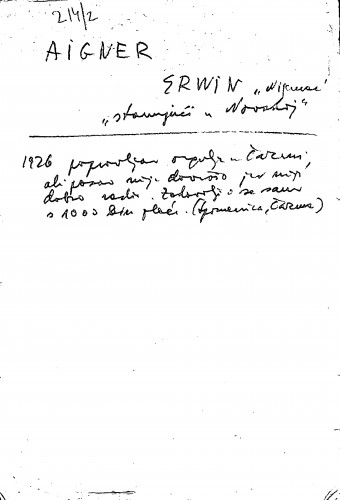 214/2
AIGNER
ERWIN „Nijemac
„stanujući u Novskoj“
1926 popravljao orgulje u Čazmi,
ali posao nije dovršio jer nije
dobro radio. Zadovoljio se samo
s 1000 Din plaće. (Spomenica, Čazma)